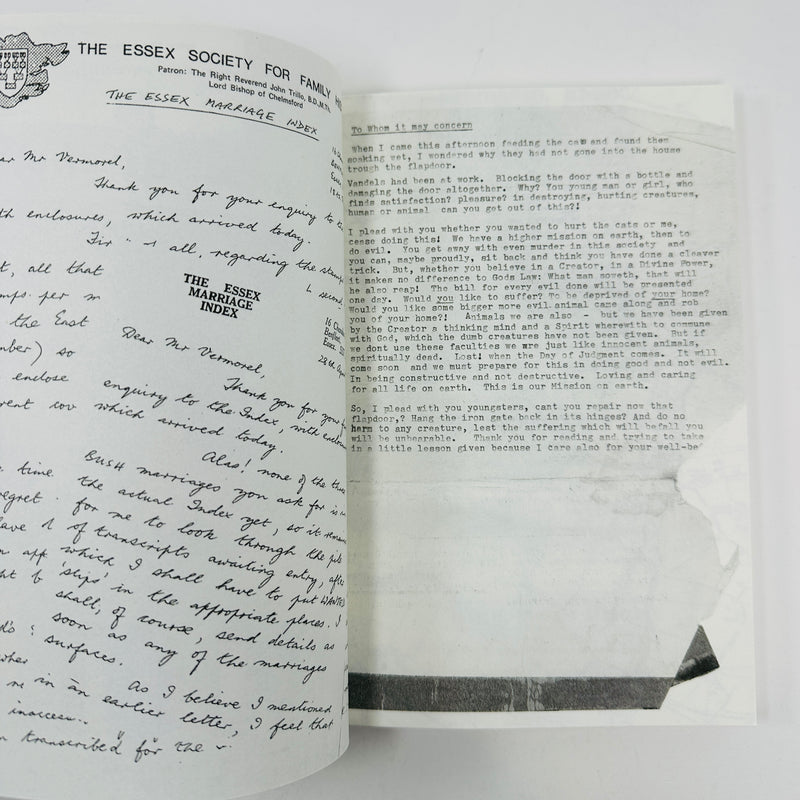 THE ESSEX SOCIETY FOR FAMILY
Patron: The Right Reverend John Trillo, B.D., M.Th.
Lord Bishop of Chelmsford
THE ESSEX MARRIAGE INDEX
Mr Vermorel,
Thank you for your enquiry to
enclosures, which arrived today.
all, regarding the stamps
all that
per
THE ESSEX
MARRIAGE
INDEX
the East
so
enclose
Dear Mr Vermorel,
Thank you for your
enquiry to the Index, with
which arrived today.
Alas! none of the three
BUSH marriages you ask for is in
the actual Index yet, so it remains
for me to look through the pile
of transcripts awaiting entry, after
which I shall have to put WANTED
'slips' in the appropriate places. I
shall, of course, send details as
soon as any of the marriages
surfaces.
As I believe I mentioned
in an earlier letter, I feel that
transcribed for the
To Whom it may concern
When I came this afternoon feeding the cats and found them
soaking wet, I wondered why they had not gone into the house
trough the flapdoor.
Vandels had been at work. Blocking the door with a bottle and
damaging the door altogether. Why? You young man or girl, who
finds satisfaction? pleasure? in destroying, hurting creatures,
human or animal can you get out of this?!
I plead with you whether you wanted to hurt the cats or me,
cease doing this! We have a higher mission on earth, then to
do evil. You get away with even murder in this society and
you can, maybe proudly, sit back and think you have done a cleaver
trick. But, whether you believe in a Creator, in a Divine Power,
it makes no difference to Gods Law: What man soweth, that will
he also reap! The bill for every evil done will be presented
one day. Would you like to suffer? To be deprived of your home?
Would you like some bigger more evil animal came along and rob
you of your home?! Animals we are also - but we have been given
by the Creator a thinking mind and a Spirit wherewith to commune
with God, which the dumb creatures have not been given. But if
we dont use these faculties we are just like innocent animals,
spiritually dead. Lost! when the Day of Judgment comes. It will
come soon and we must prepare for this in doing good and not evil.
In being constructive and not destructive. Loving and caring
for all life on earth. This is our Mission on earth.
So, I plead with you youngsters, cant you repair now that
flapdoor,? Hang the iron gate back in its hinges? And do no
harm to any creature, lest the suffering which will befall you
will be unbearable. Thank you for reading and trying to take
in a little lesson given because I care also for your well-be